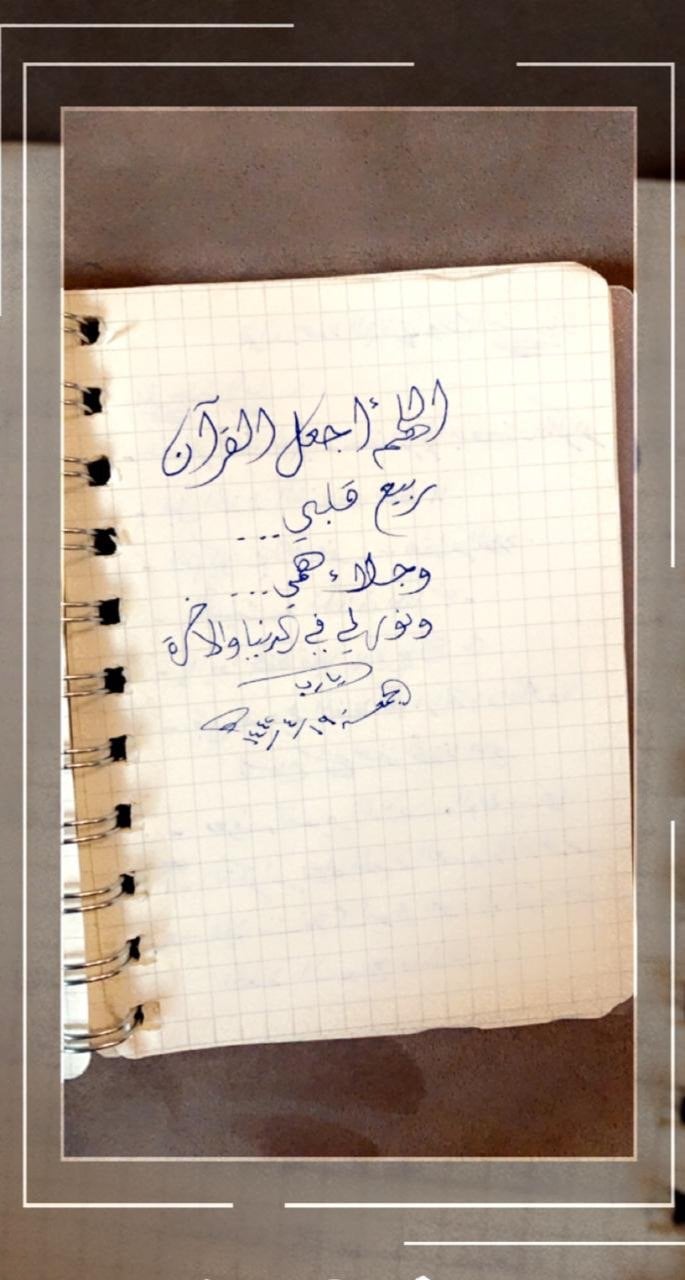 اللهم أجعل القرآن
ربيع قلبي...
وجلاء همي...
ونور لي في الدنيا والآخرة
يارب
الجمعة ١٩/٤/